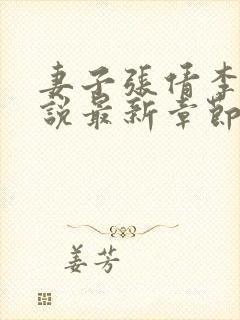 妻子張倩李
說最新章節
姜芳